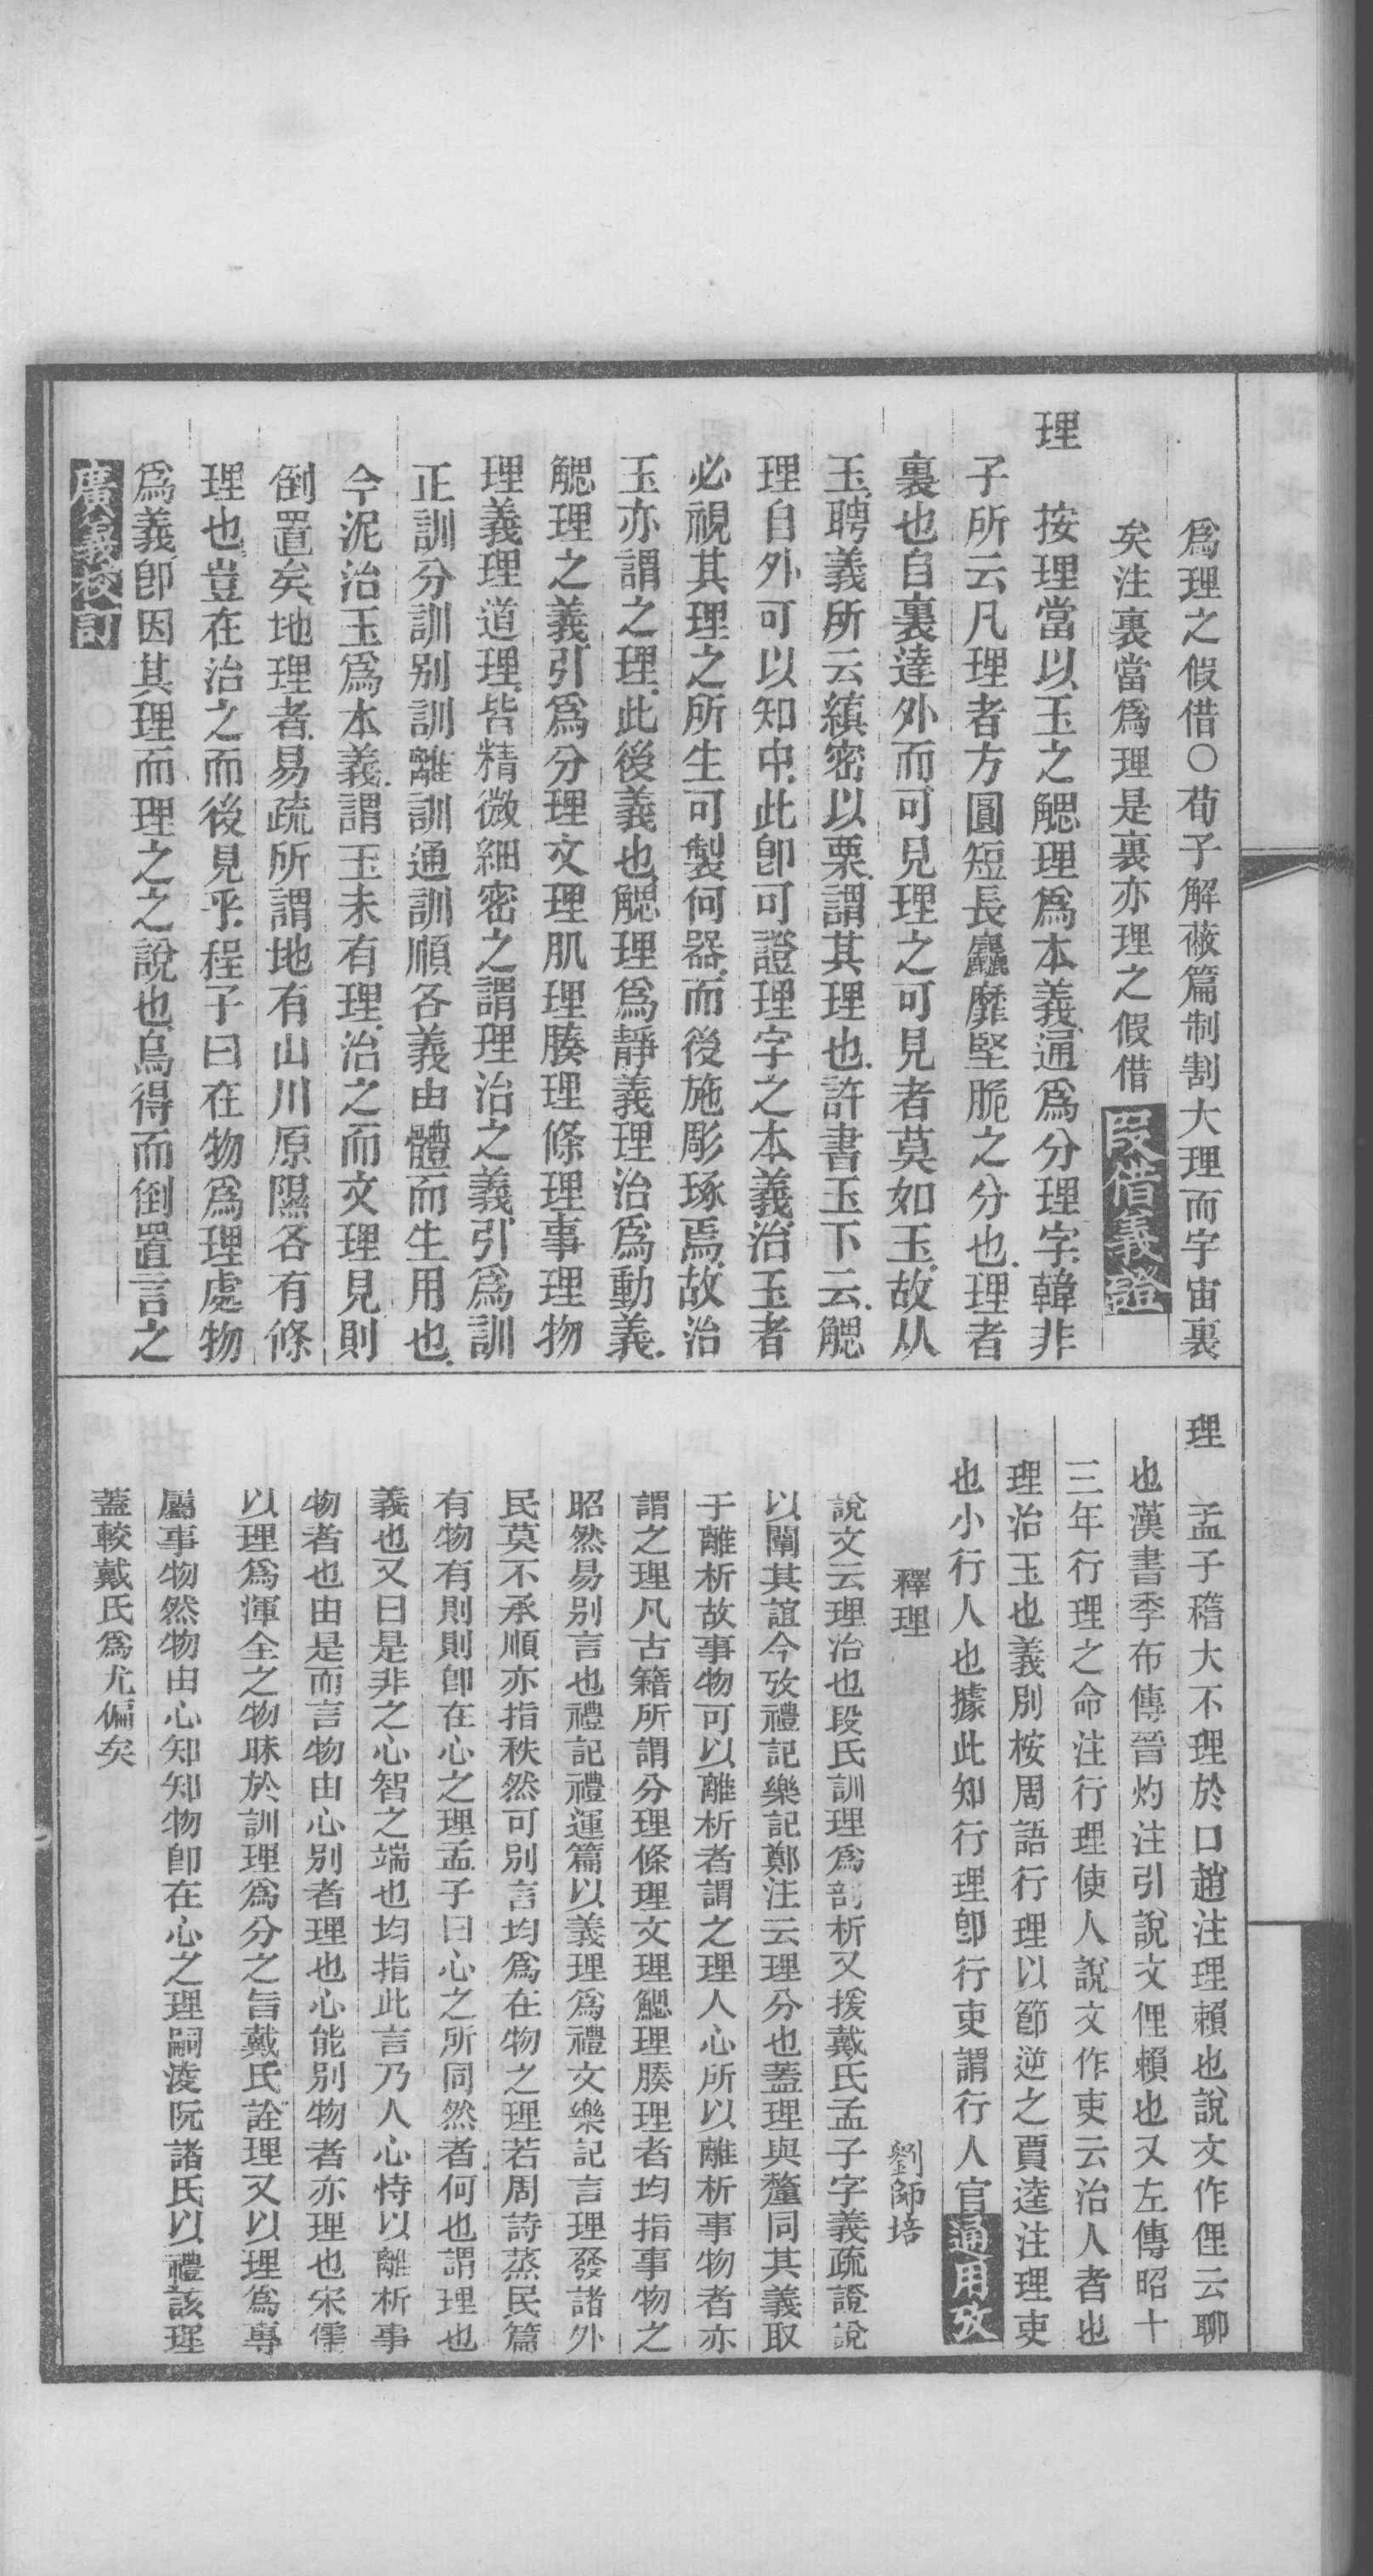 爲理之假借○荀子解蔽篇制割大理而宇宙裏
矣注裏當爲理是裏亦理之假借叚借義證
理　按理當以玉之䚡理爲本義通爲分理字韓非
子所云凡理者方圓短長麤靡堅脆之分也理者
裏也自裏達外而可見理之可見者莫如玉故从
玉聘義所云縝密以栗謂其理也許書玉下云䚡
理自外可以知中此卽可證理字之本義治玉者
必視其理之所生可製何器而後施彫琢焉故治
玉亦謂之理此後義也䚡理爲靜義理治爲動義
䚡理之義引爲分理文理肌理腠理條理事理物
理義理道理皆精微細密之謂理治之義引爲訓
正訓分訓别訓離訓通訓順各義由體而生用也
今泥治玉爲本義謂玉未有理治之而文理見則
倒置矣地理者易疏所謂地有山川原隰各有條
理也豈在治之而後見乎程子曰在物爲理處物
爲義卽因其理而理之之說也烏得而倒置言之
廣義校訂
理　孟子稽大不理於口趙注理賴也說文作俚云聊
也漢書季布傳晉灼注引說文俚賴也又左傳昭十
三年行理之命注行理使人說文作吏云治人者也
理治玉也義別桉周語行理以節逆之賈逵注理吏
也小行人也據此知行理卽行吏謂行人官通用攷
釋理　劉師培
說文云理治也段氏訓理爲剖析又援戴氏孟子字義疏證說
以闡其誼今攷禮記樂記鄭注云理分也蓋理與釐同其義取
于離析故事物可以離析者謂之理人心所以離析事物者亦
謂之理凡古籍所謂分理條理文理䚡理腠理者均指事物之
昭然易别言也禮記禮運篇以義理爲禮文樂記言理發諸外
民莫不承順亦指秩然可别言均爲在物之理若周詩蒸民篇
有物有則則卽在心之理孟子曰心之所同然者何也謂理也
義也又曰是非之心智之端也均指此言乃人心恃以離析事
物者也由是而言物由心别者理也心能别物者亦理也宋儒
以理爲渾全之物昧於訓理爲分之旨戴氏詮理又以理爲專
屬事物然物由心知知物卽在心之理嗣淩阮諸氏以禮該理
蓋較戴氏爲尤偏矣